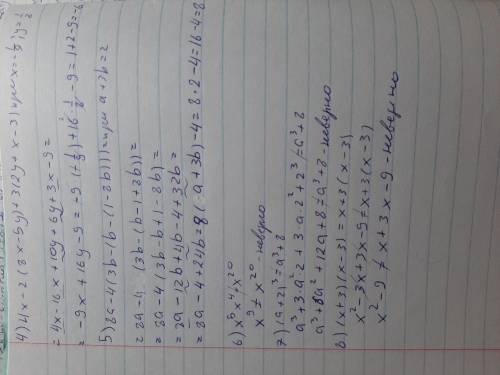 4) 4x-2(8x-5y)+3(2y+x-3) при x=-1/9; y=1/8
= 4x-16x+10y+6y+3x-9=
= -9x+16y-9= -9·(-1/9)+16·1/8-9=1+2-9=-6
5) 8a-4(3b-(b-(1-8b))) при a+3b=2
= 8a-4 (3b-(b-1+8b))=
= 8a-4(3b-b+1-8b)=
= 8a-12b+4b-4+32b=
= 8a-4+24b=8(a+3b)-4=8·2-4=16-4=8
6) x⁵x⁴≠x²⁰
x⁹≠x²⁰ - неверно
7) (a+2)³=a³+8
a³+3·a²·2+3·a·2²+2³≠a³+8
a³+8a²+12a+8≠a³+8 - неверно
8) (x+3)(x-3)=x+3(x-3)
x²-3x+3x-9≠x+3(x-3)
x²-9≠x+3x-9 - неверно